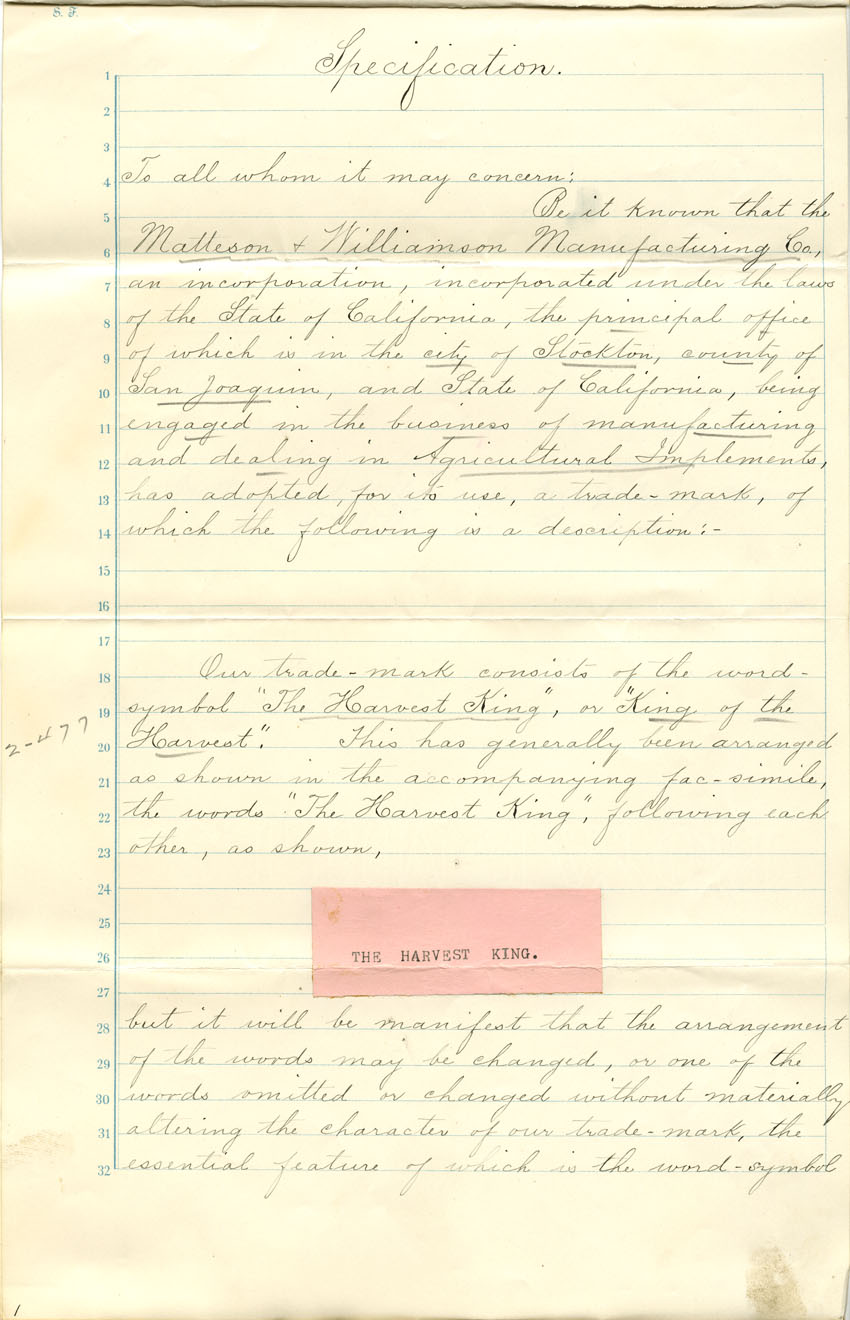 S. F.
Specification.
1
2
3
4 To all whom it may concern:
5 Be it known that the
6 Matteson & Williamson Manufacturing Co,
7 an incorporation, incorporated under the laws
8 of the State of California, the principal office
9 of which is in the city of Stockton, county of
10 San Joaquin, and State of California, being
11 engaged in the business of manufacturing
12 and dealing in Agricultural Implements,
13 has adopted, for its use, a trade-mark, of
14 which the following is a description:-
15
16
17
18 Our trade-mark consists of the word-
19 symbol "The Harvest King", or "King of the
2-477
20 Harvest". This has generally been arranged
21 as shown in the accompanying fac-simile,
22 the words "The Harvest King", following each
23 other, as shown,
24
25
26 THE HARVEST KING.
27
28 but it will be manifest that the arrangement
29 of the words may be changed, or one of the
30 words omitted or changed without materially
31 altering the character of our trade-mark, the
32 essential feature of which is the word-symbol
1